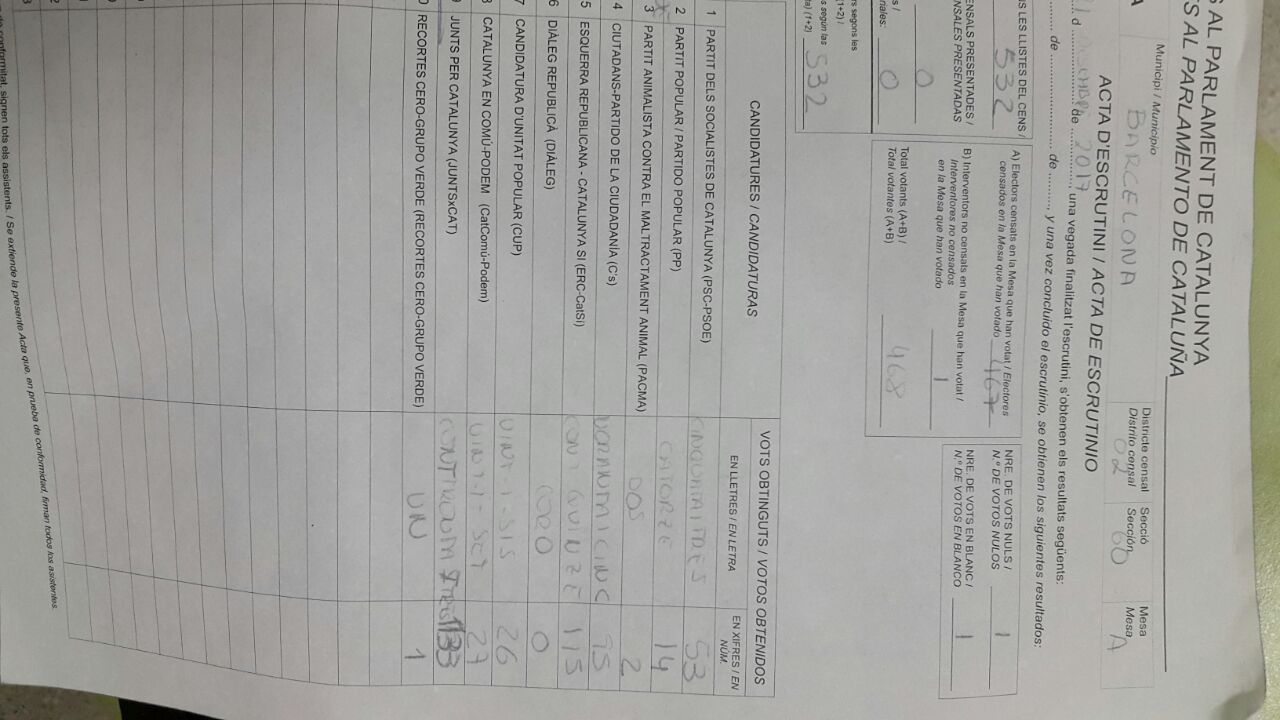 S AL PARLAMENT DE CATALUNYA
S AL PARLAMENTO DE CATALUÑA
A
Municipi / Municipio
BARCELONA
Districte censal
Distrito censal
02
Secció
Sección
60
Mesa
Mesa
A
ACTA D'ESCRUTINI / ACTA DE ESCRUTINIO
d de 2017, una vegada finalitzat l'escrutini, s'obtenen els resultats següents:
de de , y una vez concluido el escrutinio, se obtienen los siguientes resultados:
S LES LLISTES DEL CENS /
532
ENSALS PRESENTADES /
NSALES PRESENTADAS
0
s /
nales: 0
rs segons les
(1+2) /
s según las
ta) (1+2) 532
A) Electors censats en la Mesa que han votat / Electores
censados en la Mesa que han votado 467
B) Interventors no censats en la Mesa que han votat /
Interventores no censados
en la Mesa que han votado 1
Total votants (A+B) /
Total votantes (A+B) 468
NRE. DE VOTS NULS /
N.º DE VOTOS NULOS 1
NRE. DE VOTS EN BLANC /
N.º DE VOTOS EN BLANCO 1
CANDIDATURES / CANDIDATURAS
VOTS OBTINGUTS / VOTOS OBTENIDOS
EN LLETRES / EN LETRA
EN XIFRES / EN NÚM.
1 PARTIT DELS SOCIALISTES DE CATALUNYA (PSC-PSOE) CINQUANTAITRES 53
2 PARTIT POPULAR / PARTIDO POPULAR (PP) CATORZE 14
3 PARTIT ANIMALISTA CONTRA EL MALTRACTAMENT ANIMAL (PACMA) DOS 2
4 CIUTADANS-PARTIDO DE LA CIUDADANÍA (C's) NORANTAICINC 95
5 ESQUERRA REPUBLICANA - CATALUNYA SI (ERC-CatSí) CENT QUINZE 115
6 DIÀLEG REPUBLICÀ (DIÀLEG) CERO 0
7 CANDIDATURA D'UNITAT POPULAR (CUP) VINT I SIS 26
8 CATALUNYA EN COMÚ-PODEM (CatComú-Podem) VINT-I-SET 27
9 JUNTS PER CATALUNYA (JUNTSxCAT) 133
0 RECORTES CERO-GRUPO VERDE (RECORTES CERO-GRUPO VERDE) UN 1
conformitat, signen tots els assistents. / Se extiende la presente Acta que, en prueba de conformidad, firman todos los asistentes.